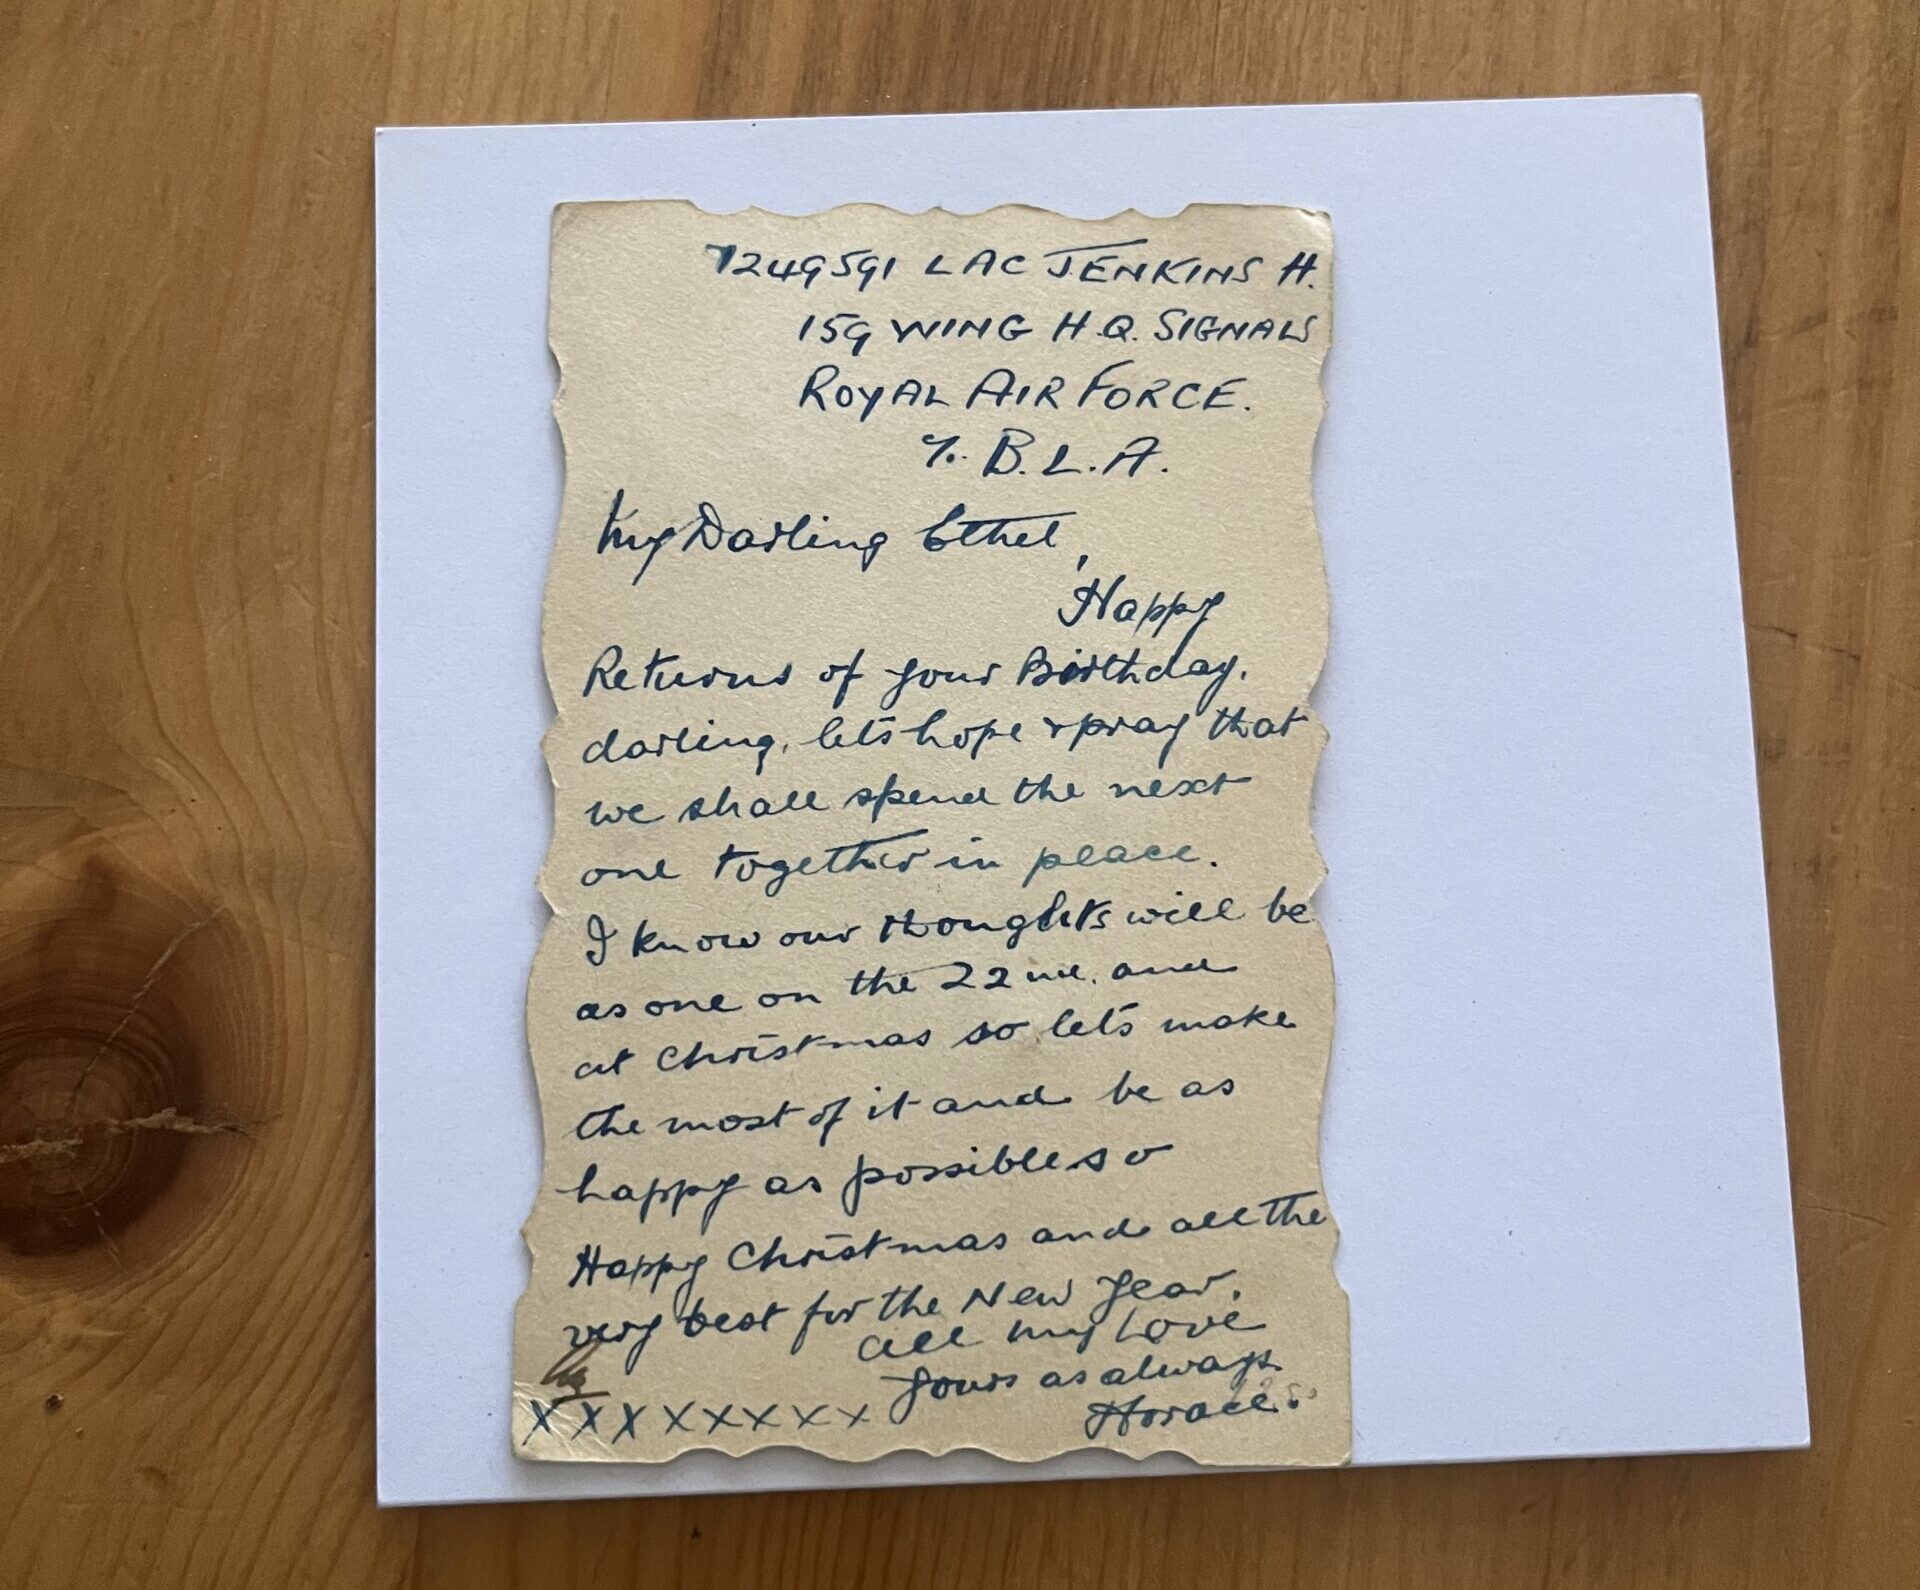 1249591 LAC JENKINS H.
159 WING H.Q. SIGNALS
ROYAL AIR FORCE.
℅ B.L.A.
My Darling Ethel,
Happy
Returns of your Birthday.
darling, let's hope & pray that
we shall spend the next
one together in peace.
I know our thoughts will be
as one on the 22nd. and
at Christmas so let's make
the most of it and be as
happy as possible so
Happy Christmas and all the
very best for the New Year.
all my Love
Yours as always
Horace.
x x x x x x x x